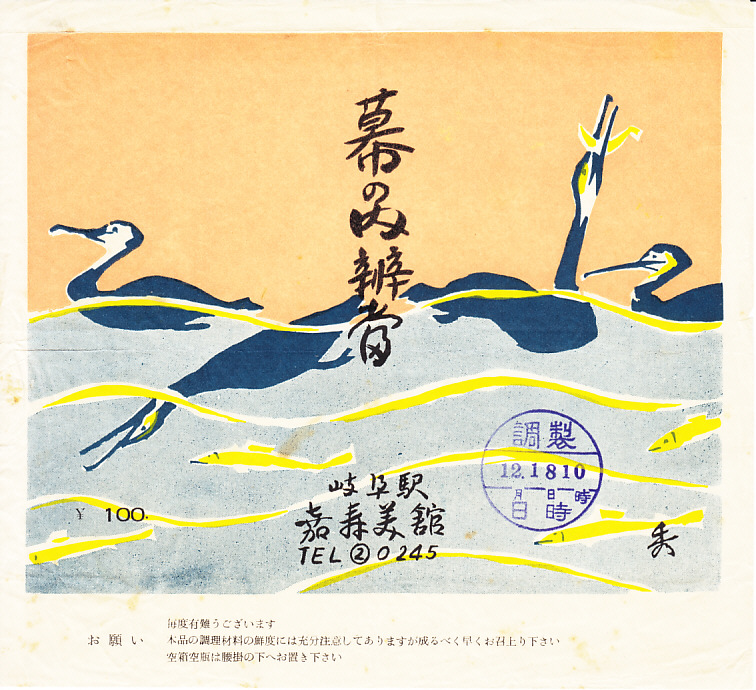 幕の内辨當
調製
12.1810
月日時
日時
¥ 100.
岐阜駅
嘉寿美館
TEL②0245
秀
お願い
毎度有難うございます
本品の調理材料の鮮度には充分注意してありますが成るべく早くお召上り下さい
空箱空瓶は腰掛の下へお置き下さい